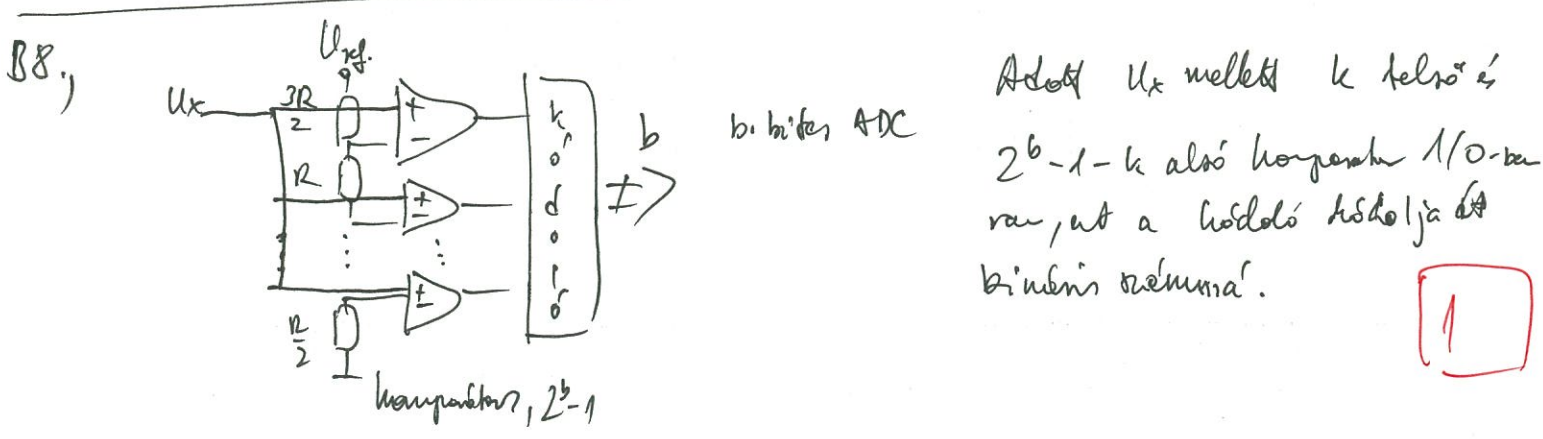 B8.,
Uref.
Ux
3R/2
+
-
R
+
-
+
-
R/2
kódoló
b
komparátor, 2^b-1
b. bites ADC
Adott Ux mellett k felső és
2^b-1-k alsó komparátor 1/0-ban
van, ezt a kódoló kódolja át
bináris számmá.
1